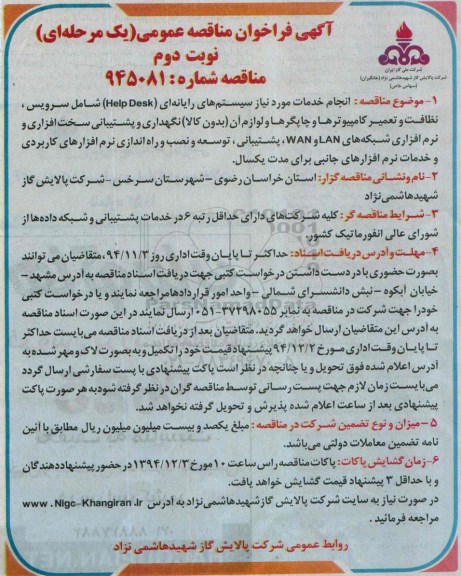 آگهی فراخوان مناقصه عمومی(یک مرحله‌ای)
نوبت دوم
مناقصه شماره: ۹۴۵۰۸۱
شرکت ملی گاز ایران
شرکت پالایش گاز شهیدهاشمی نژاد (خانگیران)
(سهامی خاص)
۱-موضوع مناقصه: انجام خدمات مورد نیاز سیستم‌های رایانه‌ای (Help Desk) شامل سرویس،
نظافت و تعمیر کامپیوترها و چاپگرها و لوازم آن (بدون کالا) نگهداری و پشتیبانی سخت افزاری و
نرم افزاری شبکه‌های LAN و WAN، پشتیبانی، توسعه و نصب و راه اندازی نرم افزارهای کاربردی
و خدمات نرم افزارهای جانبی برای مدت یکسال.
۲-نام و نشانی مناقصه گزار: استان خراسان رضوی - شهرستان سرخس - شرکت پالایش گاز
شهیدهاشمی نژاد
۳-شرایط مناقصه گر: کلیه شرکت‌های دارای حداقل رتبه ۶ در خدمات پشتیبانی و شبکه داده‌ها از
شورای عالی انفورماتیک کشور.
۴-مهلت و آدرس دریافت اسناد: حداکثر تا پایان وقت اداری روز ۹۴/۱۱/۳، متقاضیان می توانند
بصورت حضوری با در دست داشتن درخواست کتبی جهت دریافت اسناد مناقصه به آدرس مشهد -
خیابان آبکوه - نبش دانشسرای شمالی - واحد امور قراردادها مراجعه نمایند و یا درخواست کتبی
خود را جهت شرکت در مناقصه به نمابر ۳۷۲۹۸۰۵۵-۰۵۱ ارسال نمایند در این صورت اسناد مناقصه
به آدرس این متقاضیان ارسال خواهد گردید. متقاضیان بعد از دریافت اسناد مناقصه می‌بایست حداکثر
تا پایان وقت اداری مورخ ۹۴/۱۲/۲ پیشنهاد قیمت خود را تکمیل و به صورت لاک و مهر شده به
آدرس اعلام شده فوق تحویل و یا چنانچه در نظر است پاکت پیشنهادی با پست سفارشی ارسال گردد
می‌بایست زمان لازم جهت پست رسانی توسط مناقصه گران در نظر گرفته شود به هر صورت پاکت
پیشنهادی بعد از ساعت اعلام شده پذیرش و تحویل گرفته نخواهد شد.
۵-میزان و نوع تضمین شرکت در مناقصه: مبلغ یکصد و بیست میلیون میلیون ریال مطابق با آئین
نامه تضمین معاملات دولتی می‌باشد.
۶-زمان گشایش پاکات: پاکات مناقصه راس ساعت ۱۰ مورخ ۱۳۹۴/۱۲/۳ در حضور پیشنهاددهندگان
و با حداقل ۳ پیشنهاد قیمت گشایش خواهد یافت.
در صورت نیاز به سایت شرکت پالایش گاز شهیدهاشمی نژاد به آدرس www.Nigc-Khangiran.ir
مراجعه فرمائید.
روابط عمومی شرکت پالایش گاز شهیدهاشمی نژاد